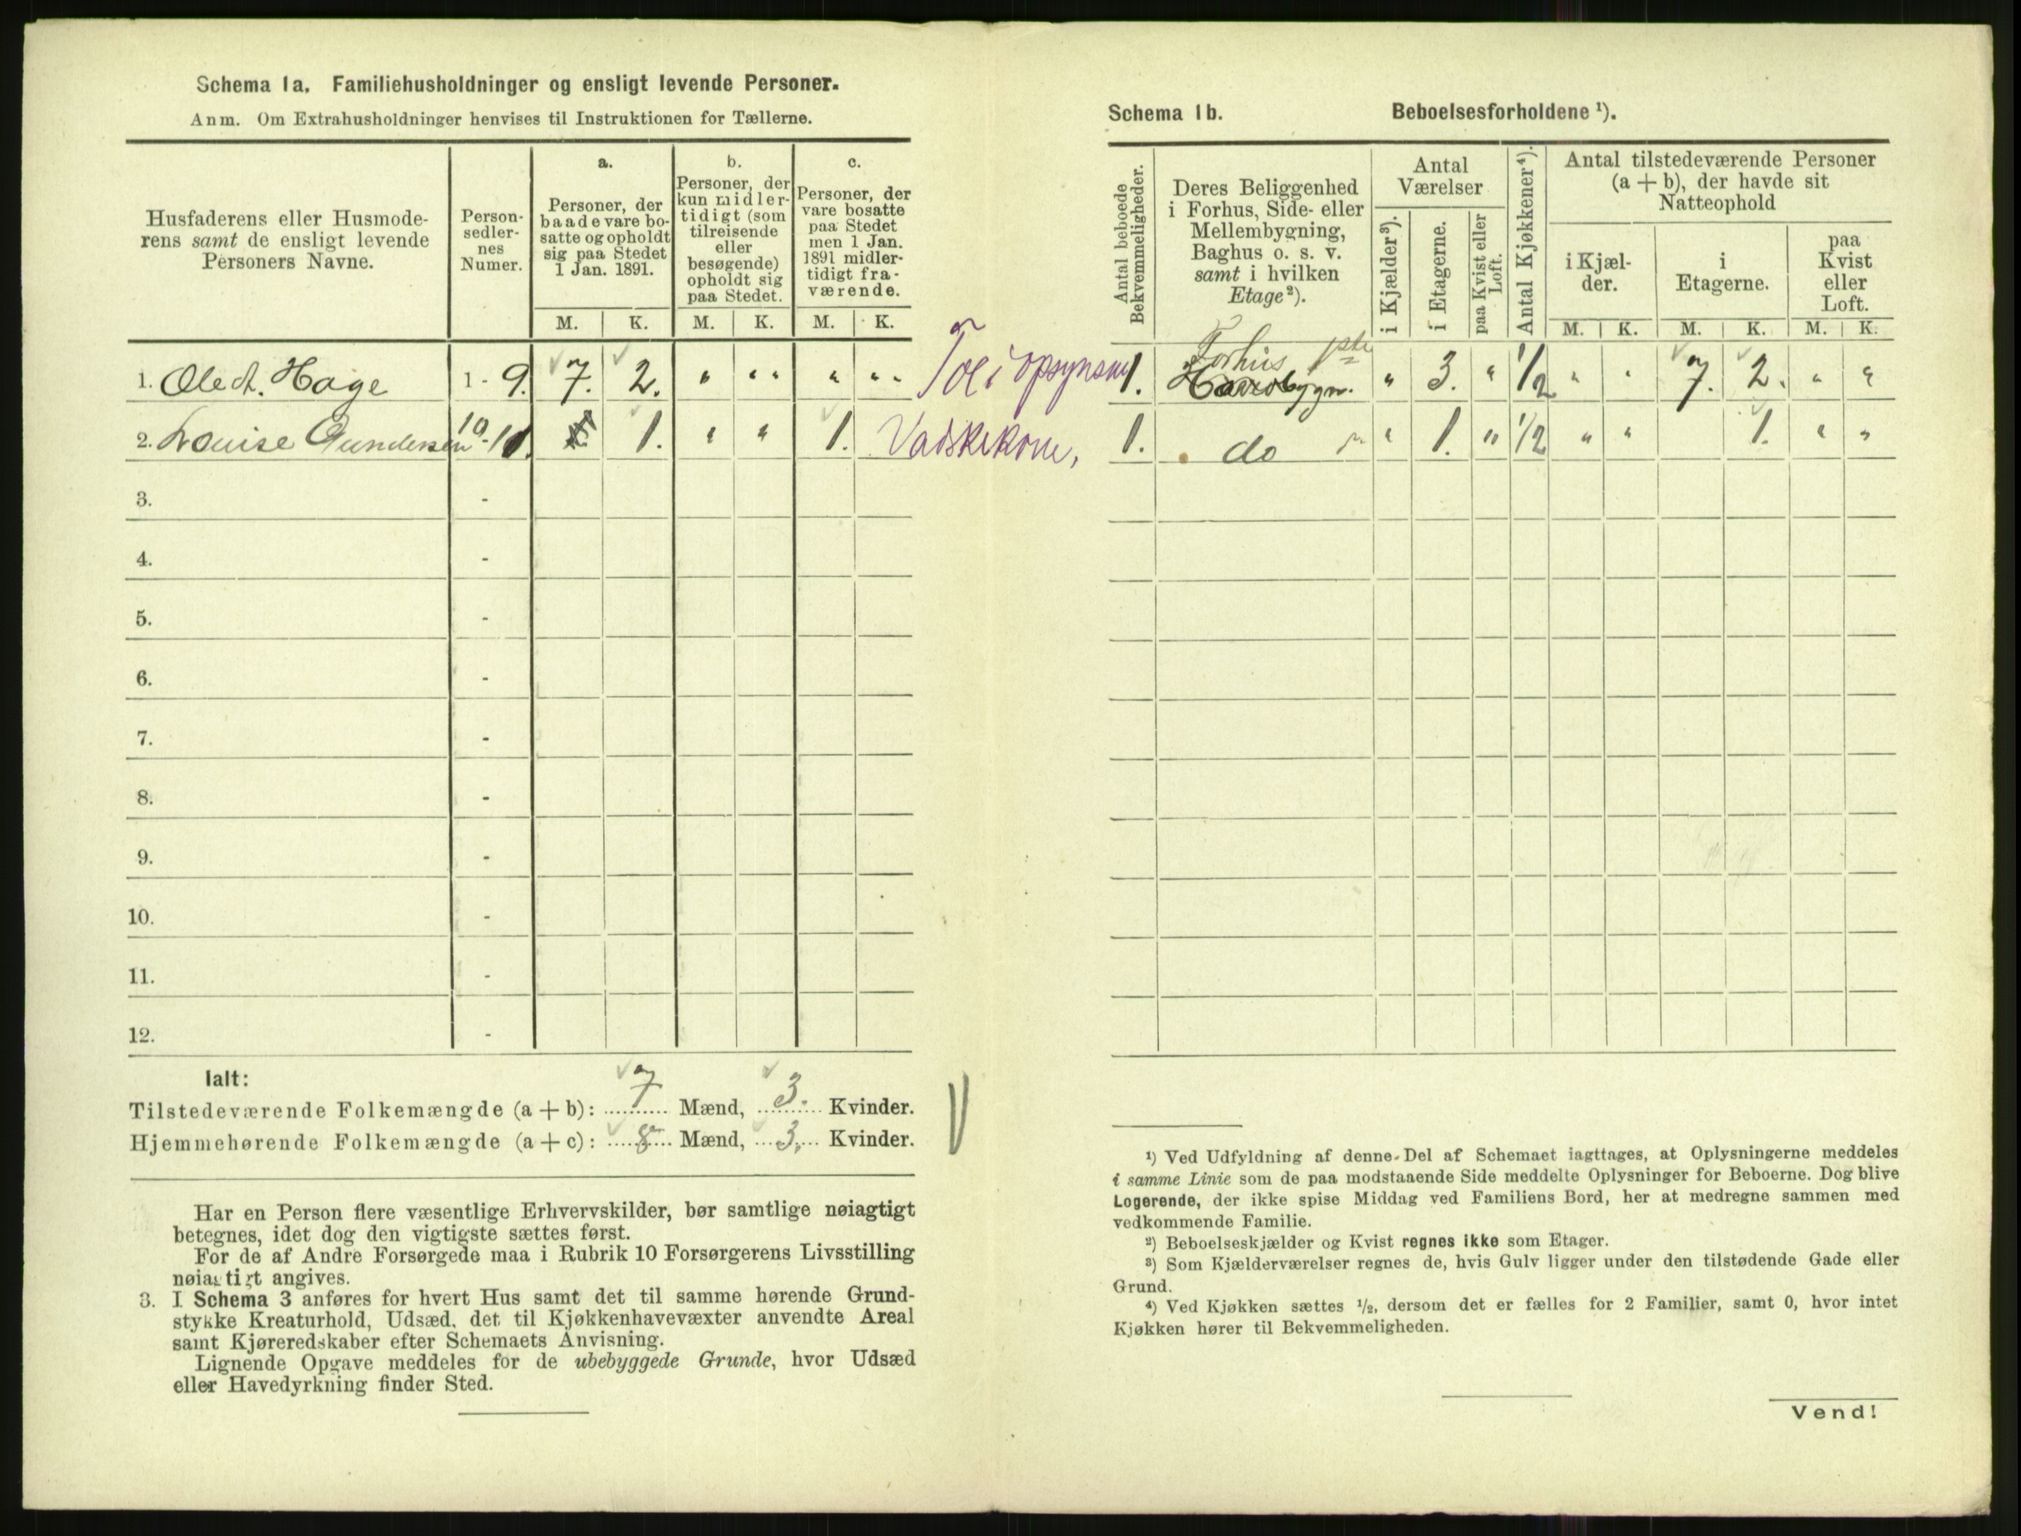 Schema 1a. Familiehusholdninger og ensligt levende Personer.
Anm. Om Extrahusholdninger henvises til Instruktionen for Tællerne.
Husfaderens eller Husmode-
rens samt de ensligt levende
Personers Navne.
Person-
sedler-
nes
Numer.
a.
Personer, der
baade vare bo-
satte og opholdt
sig paa Stedet
1 Jan. 1891.
M. K.
b.
Personer, der
kun midler-
tidigt (som
tilreisende
eller
besøgende)
opholdt sig
paa Stedet.
M. K.
c.
Personer, der
vare bosatte
paa Stedet
men 1 Jan.
1891 midler-
tidigt fra-
værende.
M. K.
1. Ole A. Hage 1 - 9. 7. 2. " " " " " " Toldopsynsm
2. Louise Gundersen 10 - 11. 1. " " 1. Vaskekone,
3. -
4. -
5. -
6. -
7. -
8. -
9. -
10. -
11. -
12. -
Ialt:
Tilstedeværende Folkemængde (a + b): 7 Mænd, 3. Kvinder.
Hjemmehørende Folkemængde (a + c): 8 Mænd, 3. Kvinder.
Har en Person flere væsentlige Erhvervskilder, bør samtlige nøiagtigt
betegnes, idet dog den vigtigste sættes først.
For de af Andre Forsørgede maa i Rubrik 10 Forsørgerens Livsstilling
nøiagtigt angives.
3. I Schema 3 anføres for hvert Hus samt det til samme hørende Grund-
stykke Kreaturhold, Udsæd, det til Kjøkkenhavevæxter anvendte Areal
samt Kjøreredskaber efter Schemaets Anvisning.
Lignende Opgave meddeles for de ubebyggede Grunde, hvor Udsæd
eller Havedyrkning finder Sted.
Schema 1b. Beboelsesforholdene ¹).
Antal beboede
Bekvemmeligheder.
Deres Beliggenhed
i Forhus, Side- eller
Mellembygning,
Baghus o. s. v.
samt i hvilken
Etage²).
Antal
Værelser
i Kjælder³).
i Etagerne.
paa Kvist eller
Loft.
Antal Kjøkkener⁴).
Antal tilstedeværende Personer
(a + b), der havde sit
Natteophold
i Kjæl-
der.
i
Etagerne.
paa
Kvist
eller
Loft.
M. K. M. K. M. K.
Forhus 1ste
1. bygn. " 3. " 1/2 " " 7. 2. " "
1. do " " 1. " 1/2 " " 1. " "
¹) Ved Udfyldning af denne Del af Schemaet iagttages, at Oplysningerne meddeles
i samme Linie som de paa modstaaende Side meddelte Oplysninger for Beboerne. Dog blive
Logerende, der ikke spise Middag ved Familiens Bord, her at medregne sammen med
vedkommende Familie.
²) Beboelseskjælder og Kvist regnes ikke som Etager.
³) Som Kjælderværelser regnes de, hvis Gulv ligger under den tilstødende Gade eller
Grund.
⁴) Ved Kjøkken sættes ½, dersom det er fælles for 2 Familier, samt 0, hvor intet
Kjøkken hører til Bekvemmeligheden.
Vend!